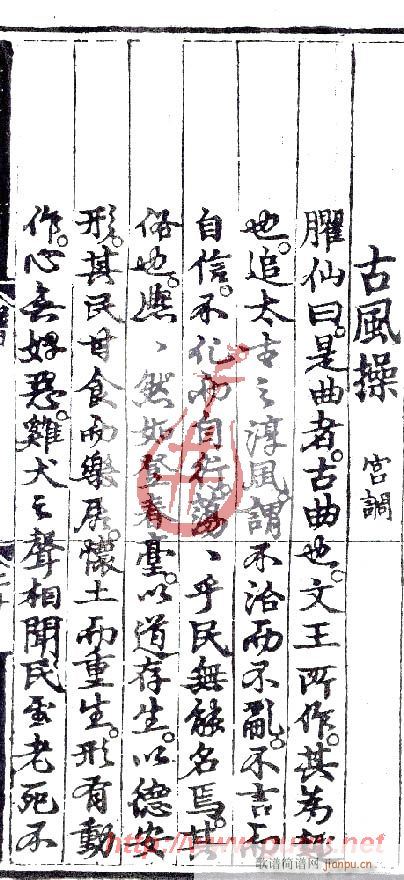 古風操 宮調
臞仙曰。是曲者。古曲也。文王所作。其為趣
也。追太古之淳風。謂不治而不亂。不言而
自信。不化而自行。蕩、乎民無能名焉。其
俗也。熙、然如登春臺。以道存生。以德安
形。其民甘食而樂居。懷土而重生。形有動
作。心無好惡。雞犬之聲相聞民至老死不
歌谱简谱网 jianpu.cn